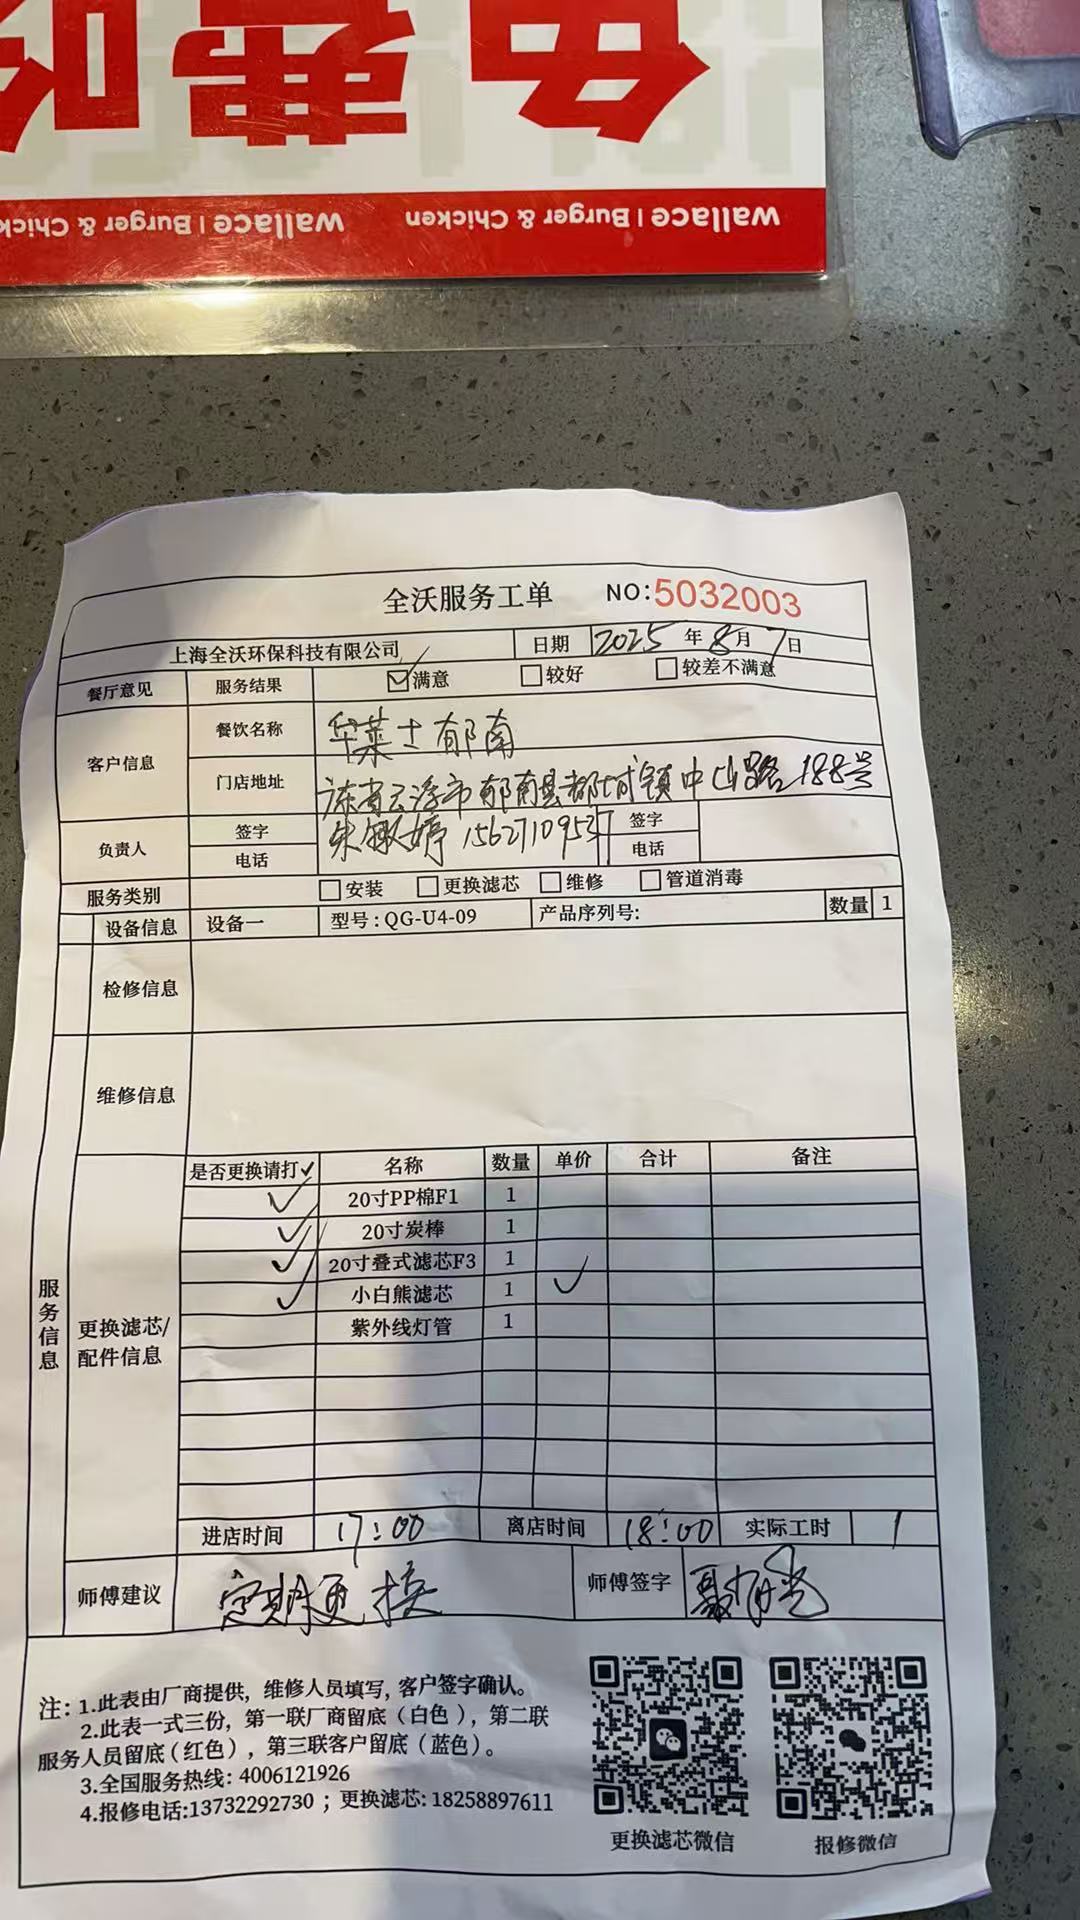 Wallace | Burger & Chicken
Wallace | Burger & Chick
全沃服务工单 NO:5032003
上海全沃环保科技有限公司 日期 2025年8月7日
餐厅意见 服务结果 满意 较好 较差不满意
客户信息 餐饮名称 华莱士郁南
门店地址 广东省云浮市郁南县都城镇中山路188号
负责人 签字 朱敏婷 15627109537 签字
电话 电话
服务类别 安装 更换滤芯 维修 管道消毒
设备信息 设备一 型号:QG-U4-09 产品序列号: 数量 1
检修信息
维修信息
服务信息
更换滤芯/配件信息
是否更换请打✓ 名称 数量 单价 合计 备注
✓ 20寸PP棉F1 1
✓ 20寸炭棒 1
✓ 20寸叠式滤芯F3 1
✓ 小白熊滤芯 1 ✓
紫外线灯管 1
进店时间 17:00 离店时间 18:00 实际工时 1
师傅建议 定期更换 师傅签字
注: 1.此表由厂商提供, 维修人员填写, 客户签字确认。
2.此表一式三份, 第一联厂商留底(白色), 第二联
服务人员留底(红色), 第三联客户留底(蓝色)。
3.全国服务热线: 4006121926
4.报修电话:13732292730 ; 更换滤芯: 18258897611
更换滤芯微信 报修微信